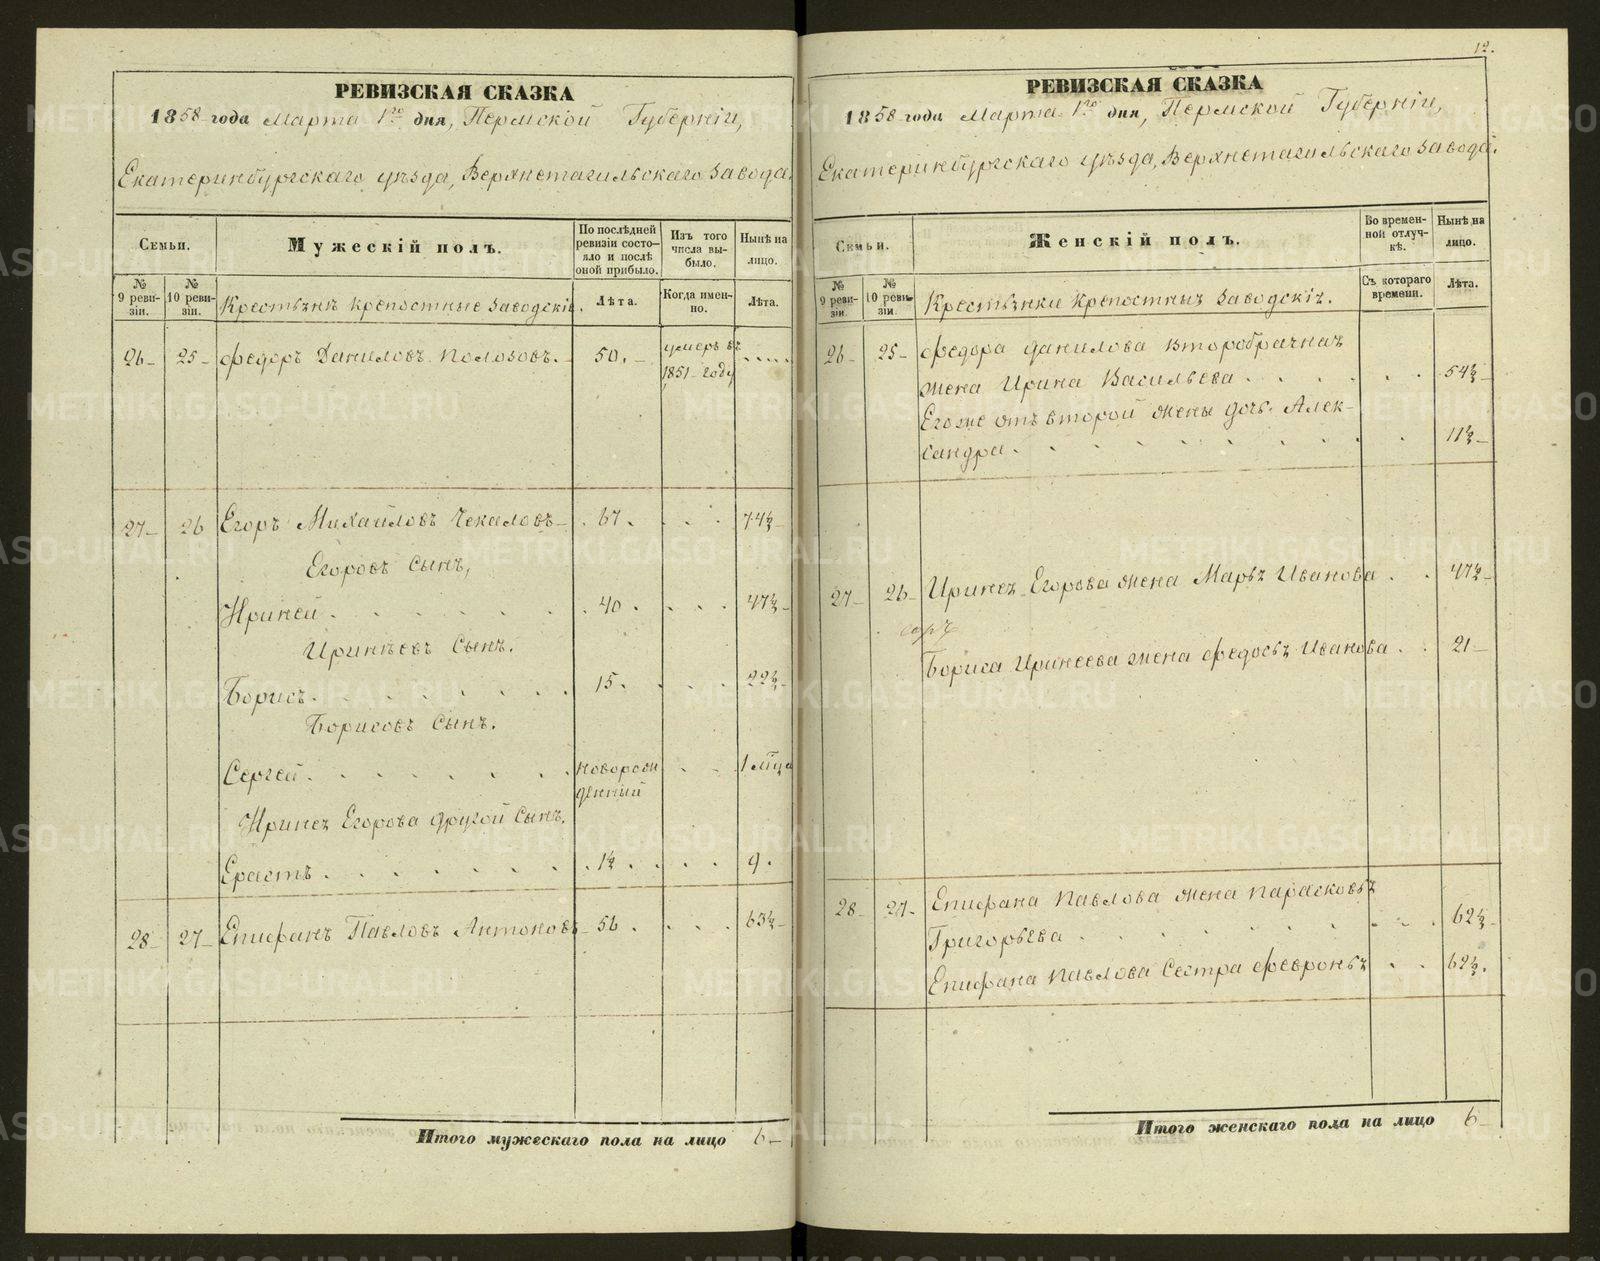 РЕВИЗСКАЯ СКАЗКА
1858 года Марта 1го дня, Пермской Губерніи,
Екатеринбургскаго уѣзда, Верхнетагильскаго завода.
Семьи.
Мужескій полъ.
По послѣдней ревизіи состояло и послѣ оной прибыло.
Изъ того числа выбыло.
Нынѣ на лицо.
№ 9 ревизіи.
№ 10 ревизіи.
Крестьянѣ крѣпостные заводскіе.
Лѣта.
Когда именно.
Лѣта.
26 25 Федоръ Даниловъ Полозовъ. 50. умеръ въ
1851 году
27 26 Егоръ Михайловъ Чекаловъ 67. 74½
Егоровъ сынъ,
Ириней 40. 47½
Иринѣевъ сынъ.
Борисъ 15. 22½
Борисовъ сынъ.
Сергей новорож
денный 1 м͞ца
Иринея Егорова другой сынъ.
Ерастъ 1½ 9.
28 27 Епифанъ Павловъ Антоновъ 56. 63½
Итого мужескаго пола на лицо 6
12.
РЕВИЗСКАЯ СКАЗКА
1858 года Марта 1го дня, Пермской Губерніи,
Екатеринбургскаго уѣзда, Верхнетагильскаго завода.
Семьи.
Женскій полъ.
Во временной отлучкѣ.
Нынѣ на лицо.
№ 9 ревизіи.
№ 10 ревизіи.
Крестьянки крѣпостныя заводскія.
Съ котораго времени.
Лѣта.
26 25 Федора Данилова второбрачная
жена Ирина Васильева 54½
Его же отъ второй жены дочь Алек-
сандра 11½
27 26 Иринея Егорова жена Марья Иванова 47½
Бориса Иринеева жена Федосья Иванова 21
28 27 Епифана Павлова жена Парасковья
Григорьева 62½
Епифана Павлова сестра Февронья 62½.
Итого женскаго пола на лицо 6
METRIKI.GASO-URAL.RU